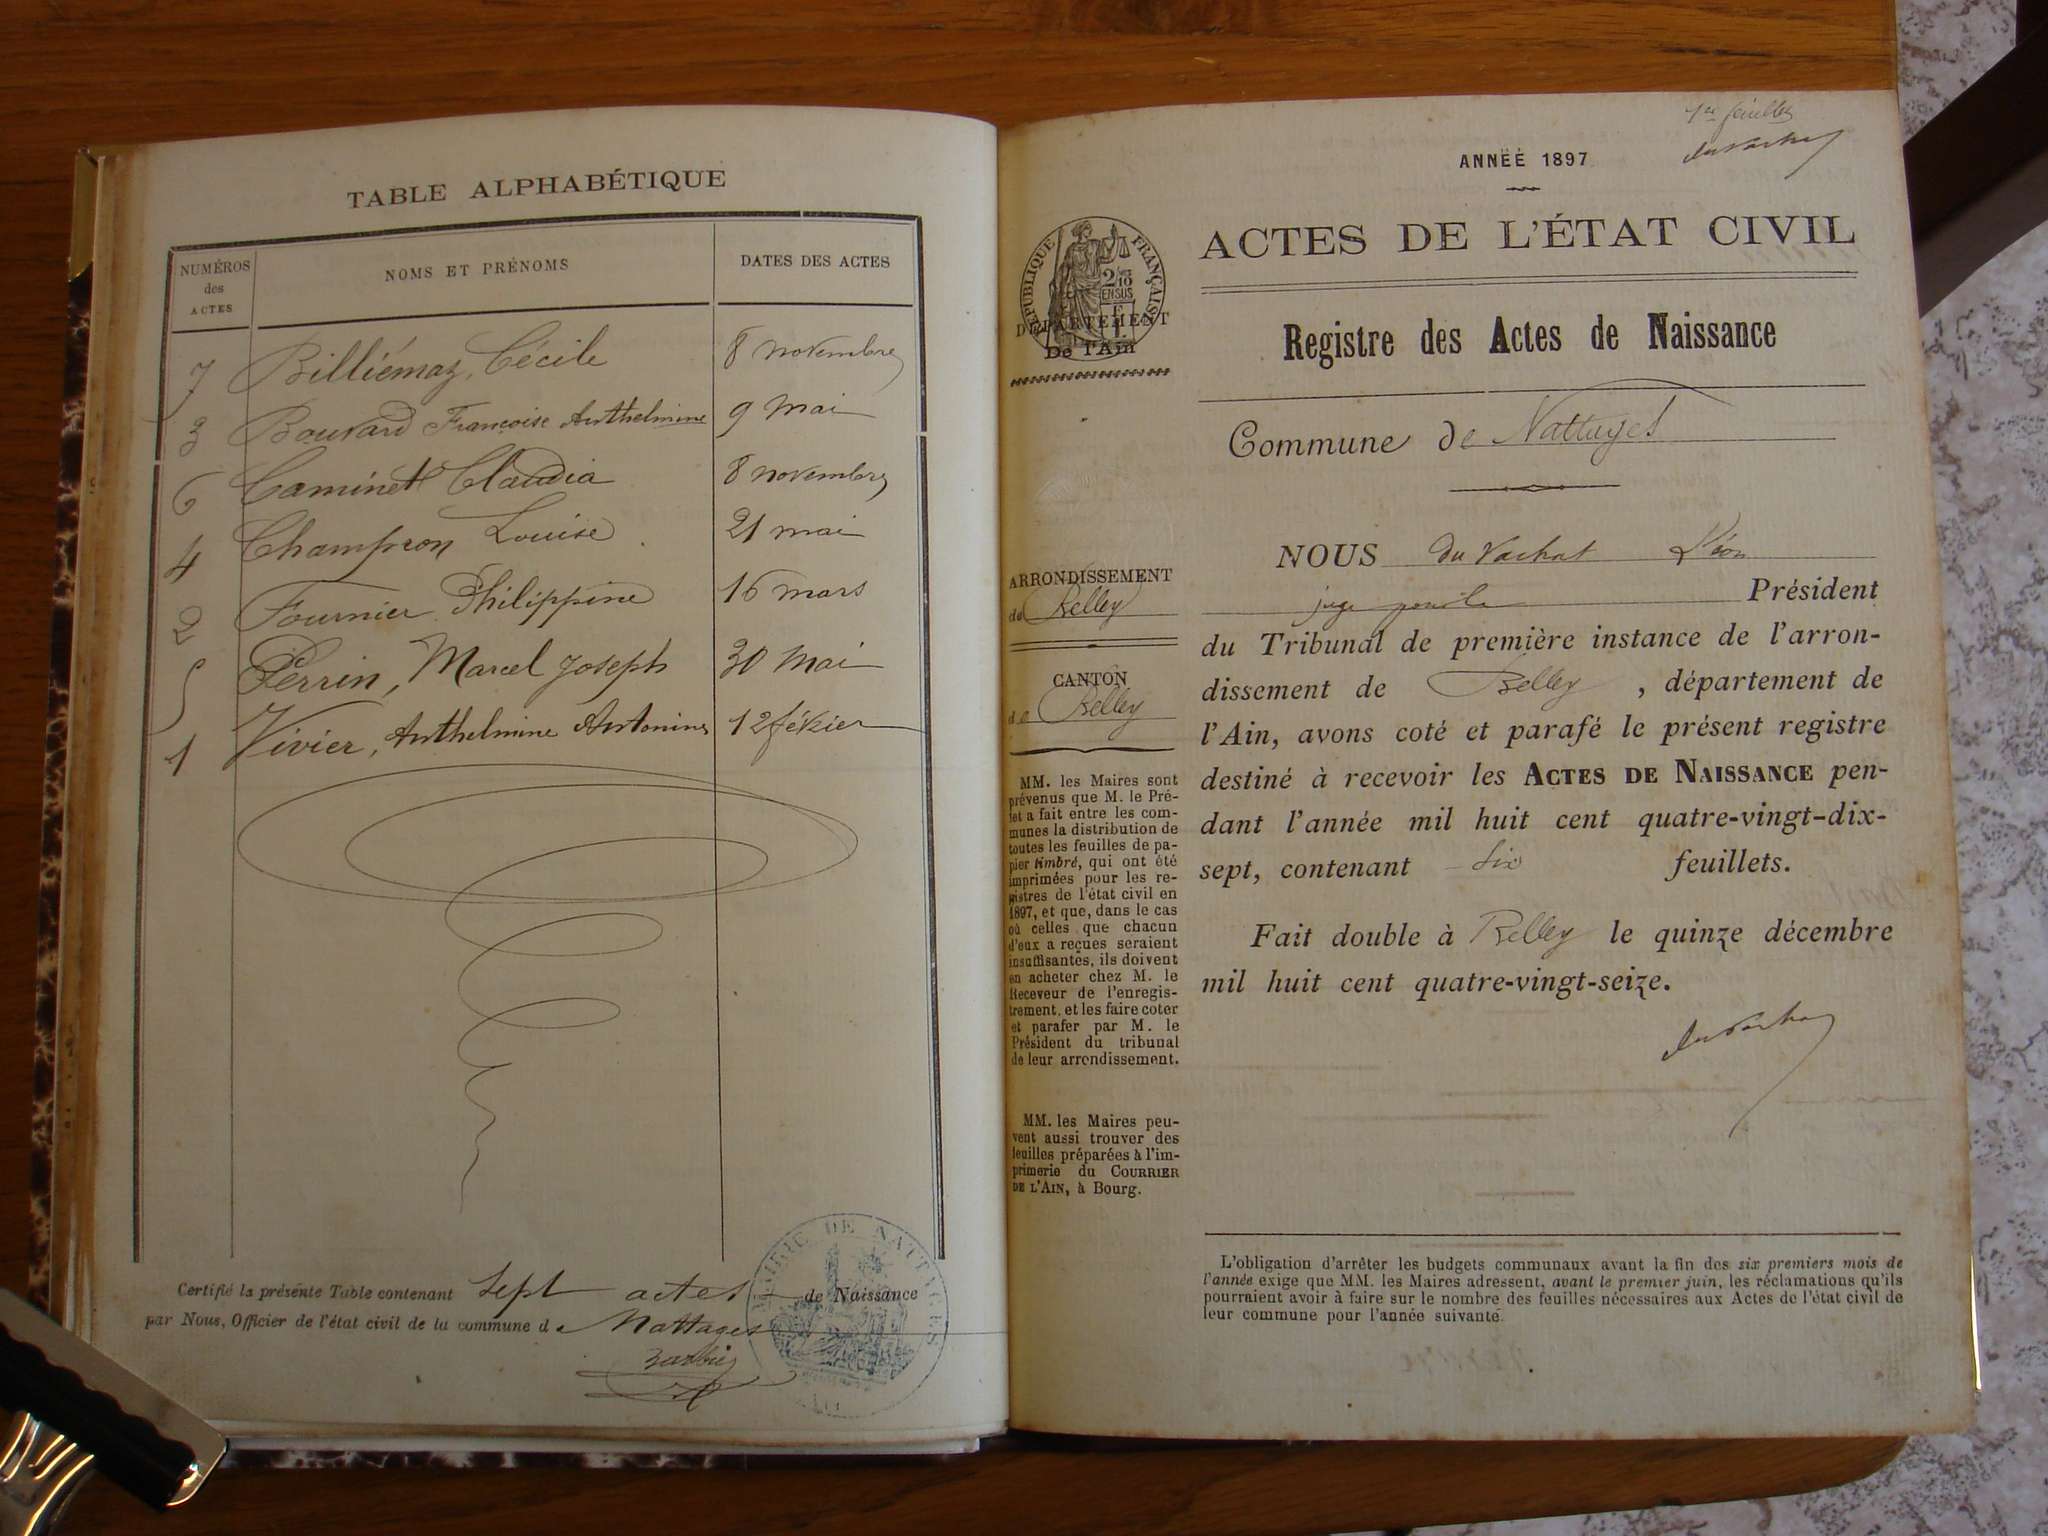 TABLE ALPHABÉTIQUE
NUMÉROS
des
ACTES
NOMS ET PRÉNOMS
DATES DES ACTES
7 Billiémaz, Cécile 8 novembre
3 Bouvard Françoise Anthelmine 9 Mai
6 Caminet Claudia 8 novembre
4 Champion Louise 21 mai
2 Fournier Philippine 16 mars
5 Perrin, Marcel Joseph 30 Mai
1 Vivier, Anthelmine Antonine 12 février
Certifié la présente Table contenant sept actes de Naissance
par Nous, Officier de l'état civil de la commune de Nattages
MAIRIE DE NATTAGES
AIN
feuillet
ANNÉE 1897
RÉPUBLIQUE FRANÇAISE
2/10
EN SUS
DÉPARTEMENT
De l'Ain
ACTES DE L'ÉTAT CIVIL
Registre des Actes de Naissance
Commune de Nattages
ARRONDISSEMENT
de Belley
CANTON
de Belley
MM. les Maires sont
prévenus que M. le Pré-
fet a fait entre les com-
munes la distribution de
toutes les feuilles de pa-
pier timbré, qui ont été
imprimées pour les re-
gistres de l'état civil en
1897, et que, dans le cas
où celles que chacun
d'eux a reçues seraient
insuffisantes, ils doivent
en acheter chez M. le
Receveur de l'enregis-
trement, et les faire coter
et parafer par M. le
Président du tribunal
de leur arrondissement.
MM. les Maires peu-
vent aussi trouver des
feuilles préparées à l'im-
primerie du COURRIER
DE L'AIN, à Bourg.
NOUS du Vachat Léon
juge Président
du Tribunal de première instance de l'arron-
dissement de Belley, département de
l'Ain, avons coté et parafé le présent registre
destiné à recevoir les ACTES DE NAISSANCE pen-
dant l'année mil huit cent quatre-vingt-dix-
sept, contenant six feuillets.
Fait double à Belley le quinze décembre
mil huit cent quatre-vingt-seize.
du Vachat
L'obligation d'arrêter les budgets communaux avant la fin des six premiers mois de
l'année exige que MM. les Maires adressent, avant le premier juin, les réclamations qu'ils
pourraient avoir à faire sur le nombre des feuilles nécessaires aux Actes de l'état civil de
leur commune pour l'année suivante.